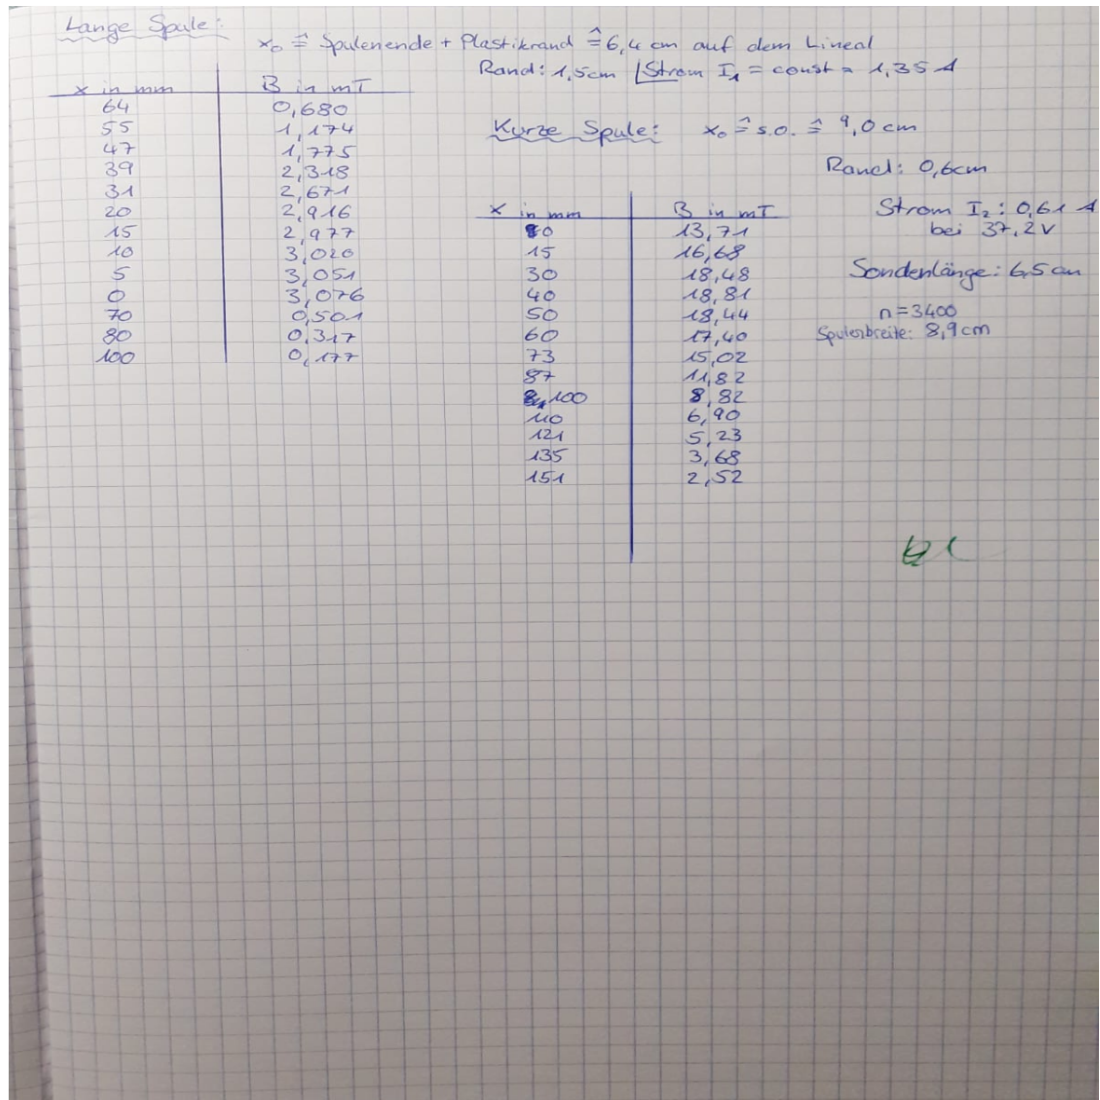 Lange Spule:
x₀ ≙ Spulenende + Plastikrand ≙ 6,4 cm auf dem Lineal
Rand: 1,5cm | Strom I₁ = const = 1,35 A
x in mm | B in mT
64 | 0,680
55 | 1,174
47 | 1,775
39 | 2,318
31 | 2,671
20 | 2,916
15 | 2,977
10 | 3,020
5 | 3,051
0 | 3,076
70 | 0,501
80 | 0,317
100 | 0,177
Kurze Spule: x₀ ≙ s.o. ≙ 9,0 cm
Rand: 0,6cm
Strom I₂: 0,61 A
bei 37,2 V
Sondenlänge: 6,5 cm
n = 3400
Spulenbreite: 8,9 cm
x in mm | B in mT
0 | 13,71
15 | 16,68
30 | 18,48
40 | 18,81
50 | 18,44
60 | 17,40
73 | 15,02
87 | 11,82
100 | 8,82
110 | 6,90
121 | 5,23
135 | 3,68
151 | 2,52